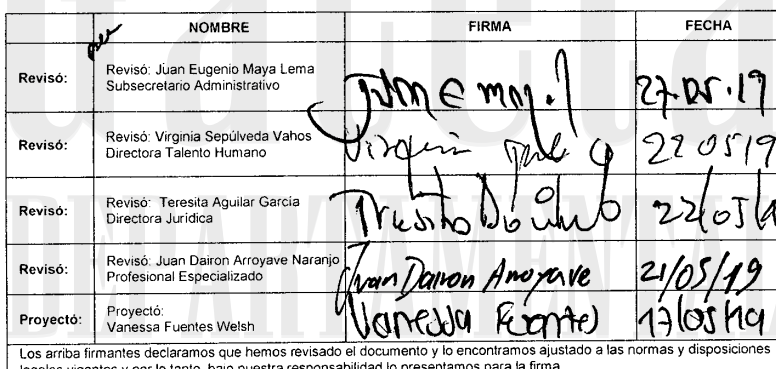 NOMBRE FIRMA FECHA
Revisó: Revisó: Juan Eugenio Maya Lema
Subsecretario Administrativo 27.05.19
Revisó: Revisó: Virginia Sepúlveda Vahos Virginia
Directora Talento Humano 22 05/19
Revisó: Revisó: Teresita Aguilar García
Directora Jurídica 22/05/19
Revisó: Revisó: Juan Dairon Arroyave Naranjo Juan Dairon Arroyave 21/05/19
Profesional Especializado
Proyectó: Proyectó: Vanessa Fuentes 17/05/19
Vanessa Fuentes Welsh
Los arriba firmantes declaramos que hemos revisado el documento y lo encontramos ajustado a las normas y disposiciones
legales vigentes y por lo tanto, bajo nuestra responsabilidad lo presentamos para la firma.